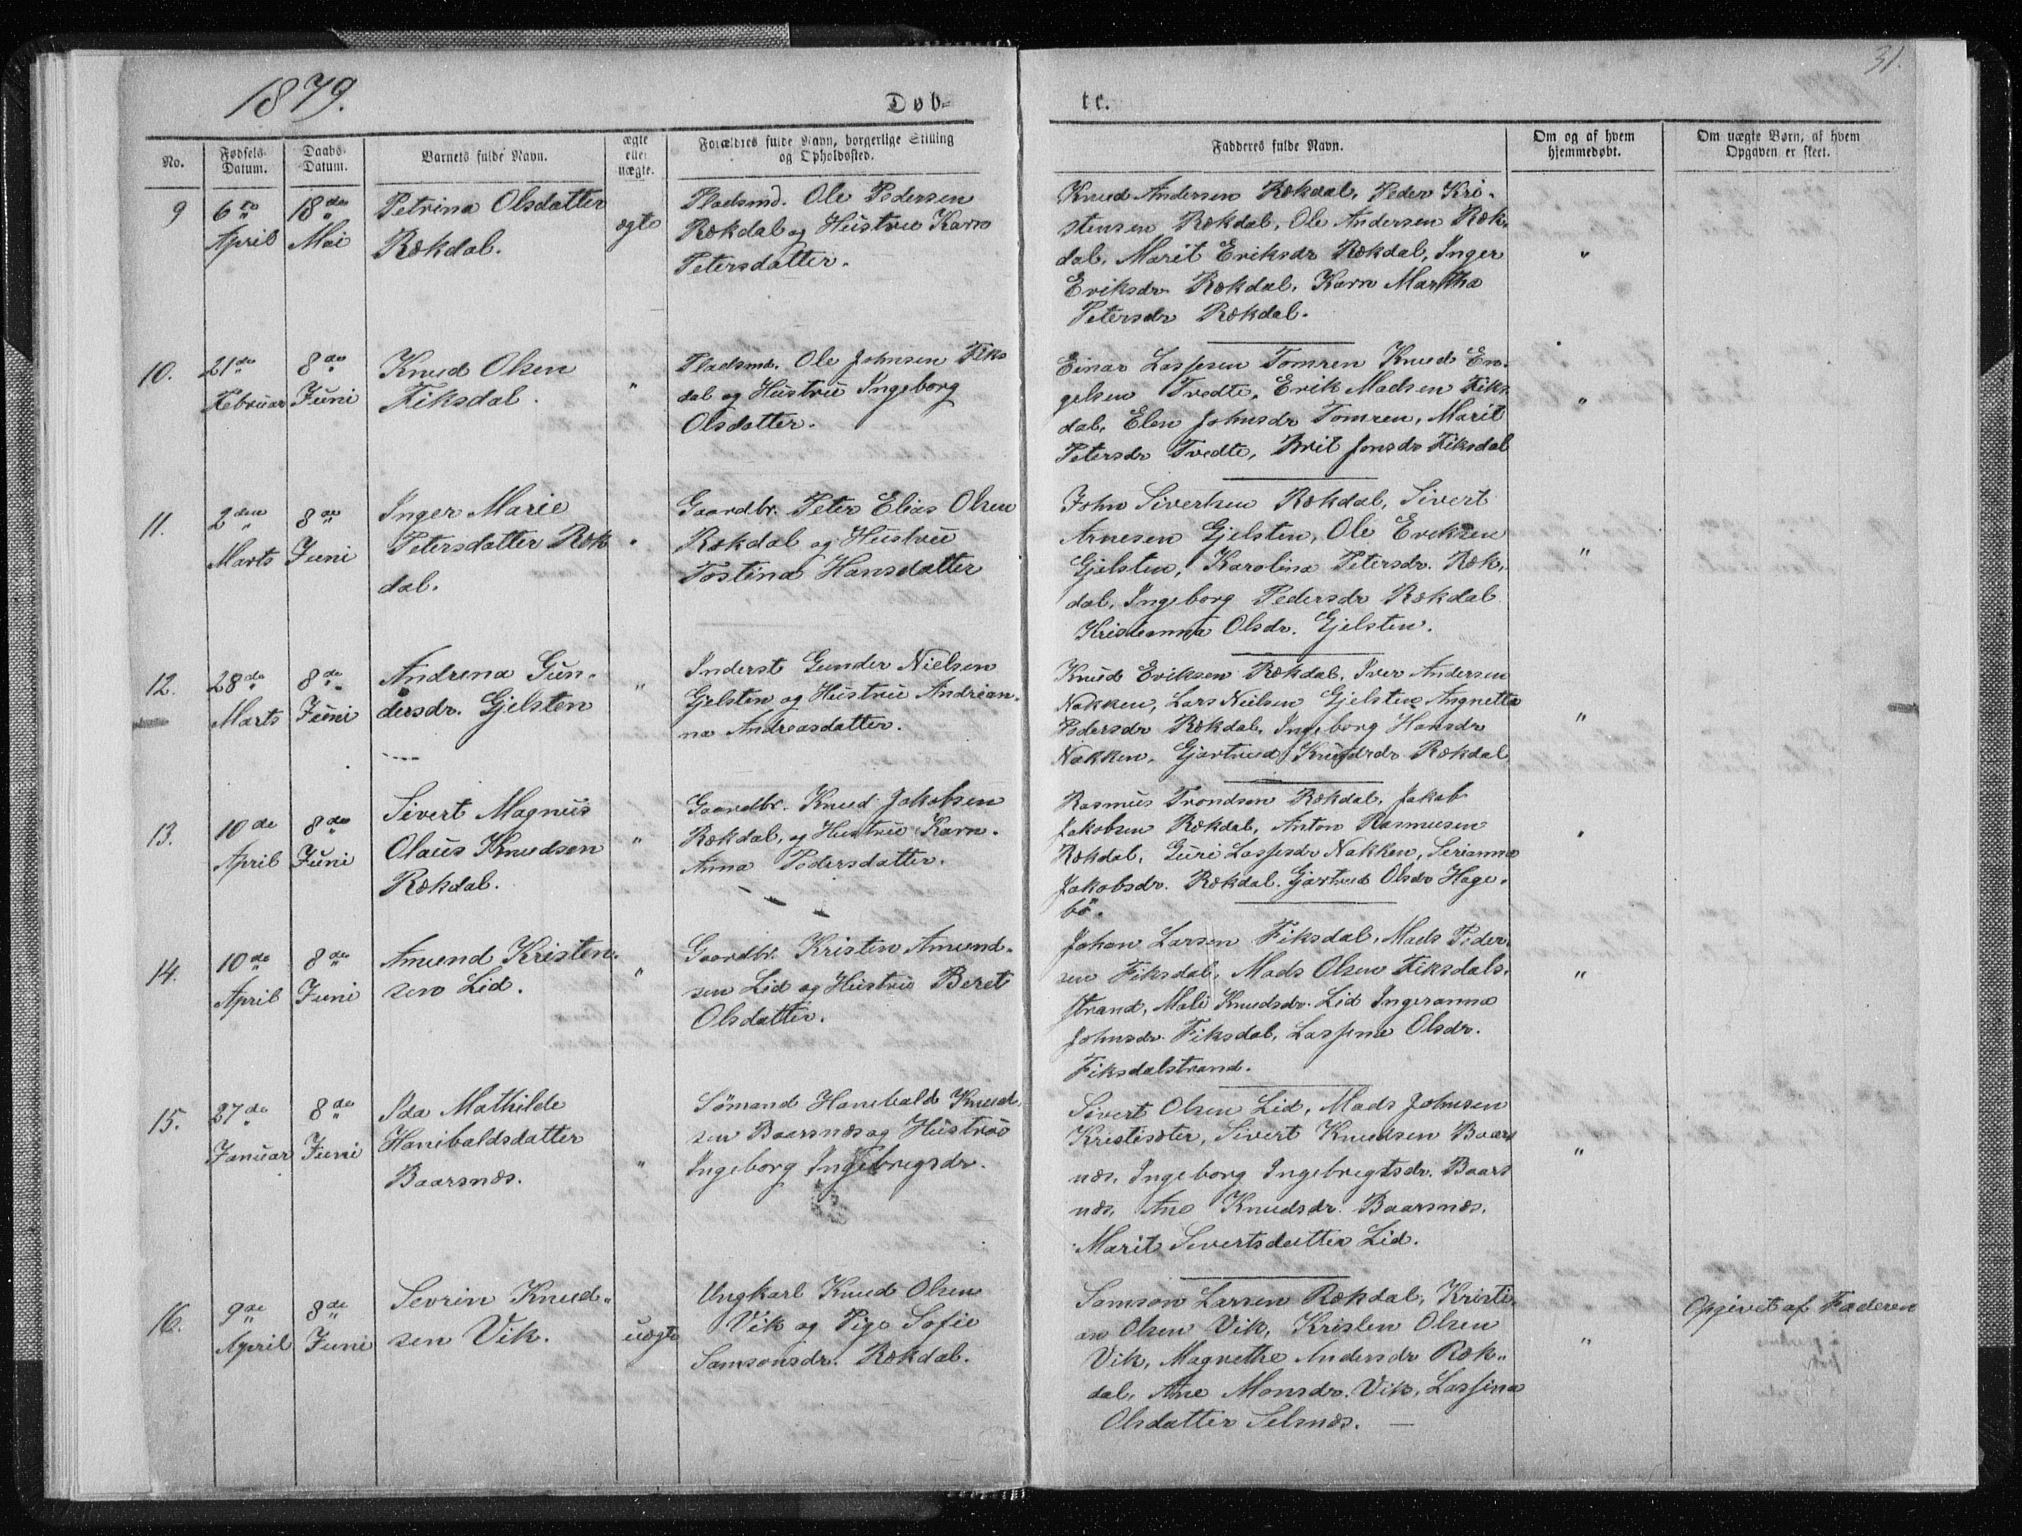 1879.
Døb-
te.
31.
No.
Fødsels-
Datum.
Daabs-
Datum.
Barnets fulde Navn.
ægte
eller
uægte.
Forældres fulde Navn, borgerlige Stilling
og Opholdssted.
Fadderes fulde Navn.
Om og af hvem
hjemmedøbt.
Om uægte Børn, af hvem
Opgaven er skeet.
9
6te
April
18de
Mai
Petrina Olsdatter
Rækdal.
ægte
Pladsmd. Ole Pedersen
Rækdal og Hustru Karn
Petersdatter.
Knud Andersen Rækdal, Peder Kri-
stensen Rækdal, Ole Andersen Ræk-
dal, Marit Eriksdr Rækdal, Inger
Eriksdr Rækdal, Karn Martha
Petersdr Rækdal.
"
10.
21de
Februar
8de
Juni
Knud Olsen
Fiksdal.
"
Pladsmd. Ole Johnsen Fiks
dal og Hustru Ingeborg
Olsdatter.
Einar Lassesen Tomren Knud En-
gelsen Tvedte, Erik Madsen Fiks
dal, Elen Johnsdr Tomren, Marit
Petersdr Tvedte, Brit Jonsdr Fiksdal
"
11.
2den
Marts
8de
Juni
Inger Marie
Petersdatter Ræk
dal.
"
Gaardbr. Peter Elias Olsen
Rækdal og Hustru
Tostina Hansdatter
John Sivertsen Rækdal, Sivert
Arnesen Gjelsten, Ole Eriksen
Gjelsten, Karolina Petersdr. Ræk-
dal, Ingeborg Pedersdr Rækdal
Kristianna Olsdr. Gjelsten.
"
12.
28de
Marts
8de
Juni
Andrena Gun-
dersdr. Gjelsten
"
Inderst Gunder Nielsen
Gjelsten og Hustru Andrian-
na Andreasdatter.
Knud Eriksen Rækdal, Iver Andersen
Nakken, Lars Nielsen Gjelsten Angnetta
Pedersdr Rækdal, Ingeborg Hansdr
Nakken, Gjertrud Knudsdr Rækdal
"
13.
10de
April
8de
Juni
Sivert Magnus
Olaus Knudsen
Rækdal.
"
Gaardbr. Knud Jakobsen
Rækdal, og Hustru Karn-
Anna Pedersdatter.
Rasmus Trondsen Rækdal, Jakob
Jakobsen Rækdal, Anton Rasmusen
Rækdal, Guri Lassesdr Nakken, Serianna
Jakobsdr. Rækdal. Gjertrud Olsdr Hage-
bö.
"
14.
10de
April
8de
Juni
Amund Kristen-
sen Lid.
"
Gaardbr. Kristen Amund-
sen Lid og Hustru Beret
Olsdatter.
Johan Larsen Fiksdal, Mads Peder-
sen Fiksdal, Mads Olsen Fiksdals-
strand, Mali Knudsdr. Lid Ingeranna
Johnsdr. Fiksdal, Lassine Olsdr.
Fiksdalstrand.
"
15.
27de
Januar
8de
Juni
Ida Mathilde
Hanibaldsdatter
Baarsnæs.
"
Sömand Hanibald Knud-
sen Baarsnæs og Hustru
Ingeborg Ingebrigsdr.
Sivert Olsen Lid, Mads Johnsen
Kristisæter, Sivert Knudsen Baars
næs, Ingeborg Ingebrigtsdr. Baars
næs, Ane Knudsdr. Baarsnæs,
Marit Sivertsdatter Lid.
"
16.
9de
April
8de
Juni
Sevrin Knud-
sen Vik.
uægte
Ungkarl Knud Olsen
Vik og Pige Sofie
Samsonsdr. Rækdal.
Samson Larsen Rækdal, Kristi-
an Olsen Vik, Kristen Olsen
Vik, Magnethe Andersdr Ræk-
dal, Ane Monsdr. Vik, Lassina
Olsdatter Selsnæs.
"
Opgivet af Faderen